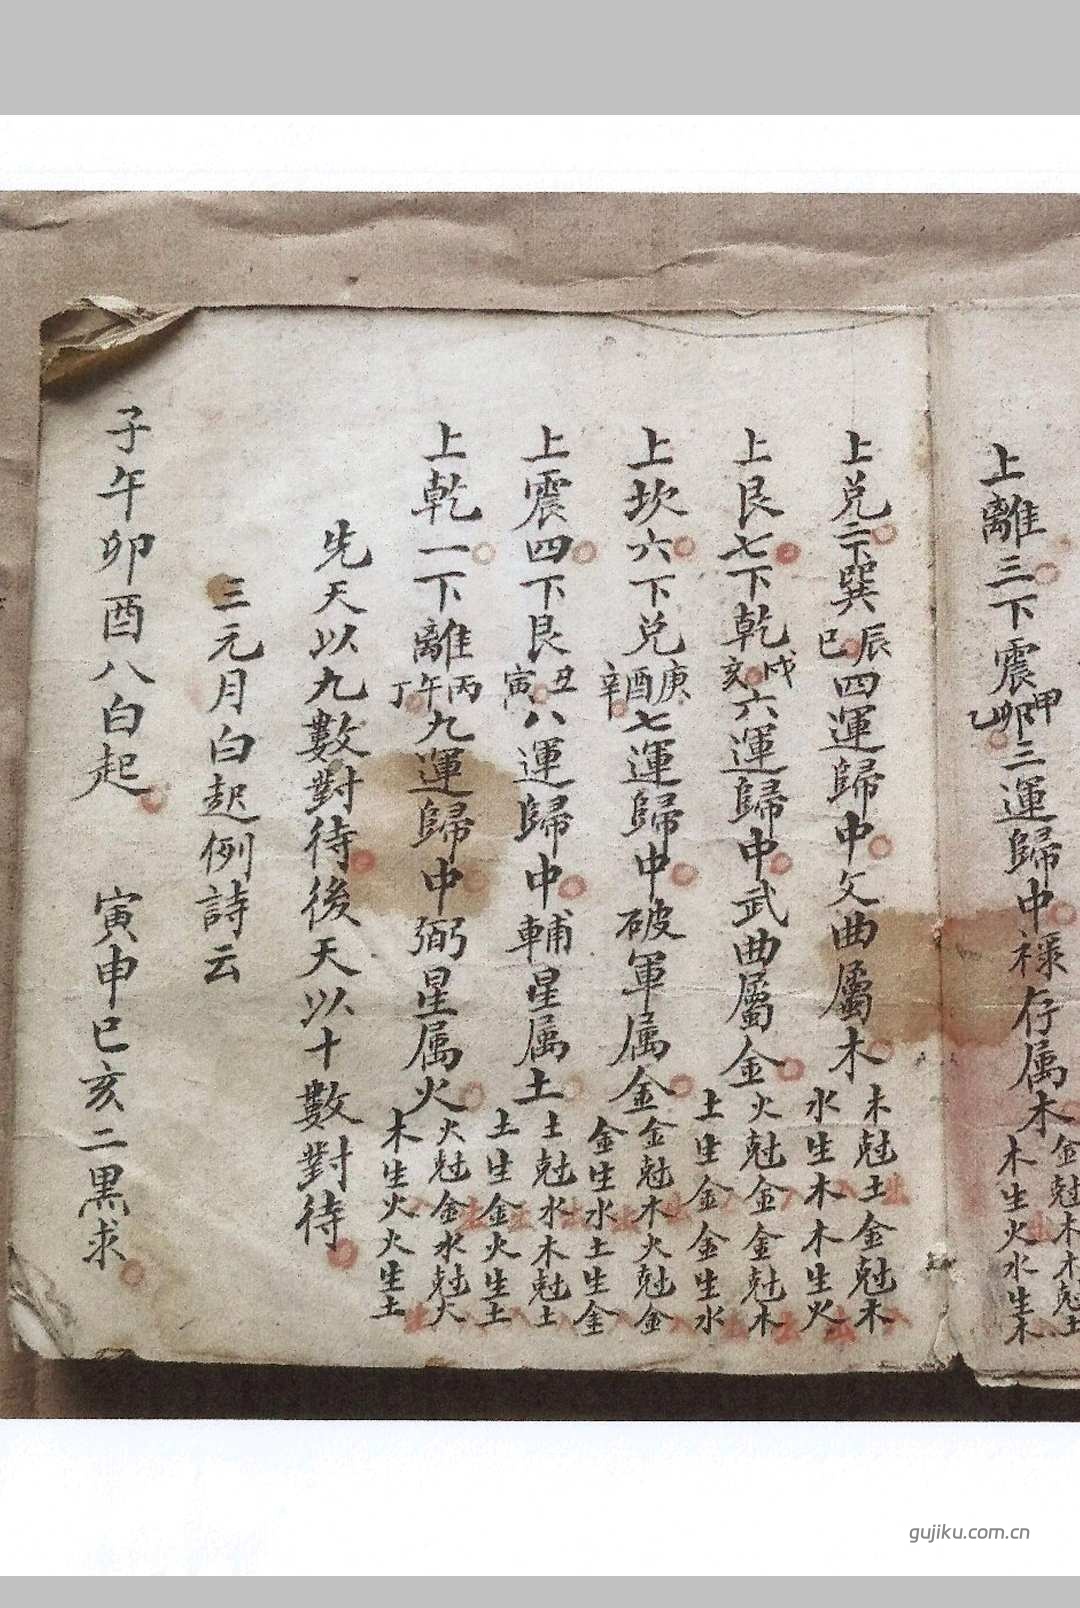 上離三下震甲卯乙三運歸中禄存属木金尅木木尅土
木生火水生木
上兑二下巽辰巳四運歸中文曲屬木木尅土金尅木
水生木木生火
上艮七下乾戌亥六運歸中武曲屬金火尅金金尅木
土生金金生水
上坎六下兑庚酉辛七運歸中破軍属金金尅木火尅金
金生水土生金
上震四下艮丑寅八運歸中輔星属土土尅水木尅土
土生金火生土
上乾一下離丙午丁九運歸中弼星属火火尅金水尅火
木生火火生土
先天以九數對待後天以十數對待
三元月白起例詩云
子午卯酉八白起 寅申巳亥二黑求
gujiku.com.cn